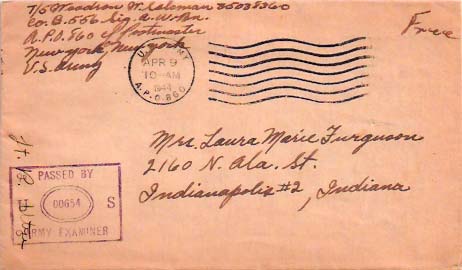 T/5 Woodrow W. Coleman 35038360
Co. B. 556 Sig. A. W. Bn.
A.P.O. 860 c/o Postmaster
New York, New York
U.S. Army
Free
U.S. ARMY
APR 9
10-AM
1944
A.P.O. 860
Mrs. Laura Marie Furguson
2160 N. Ala. St.
Indianapolis #2, Indiana
PASSED BY
00654 S
ARMY EXAMINER